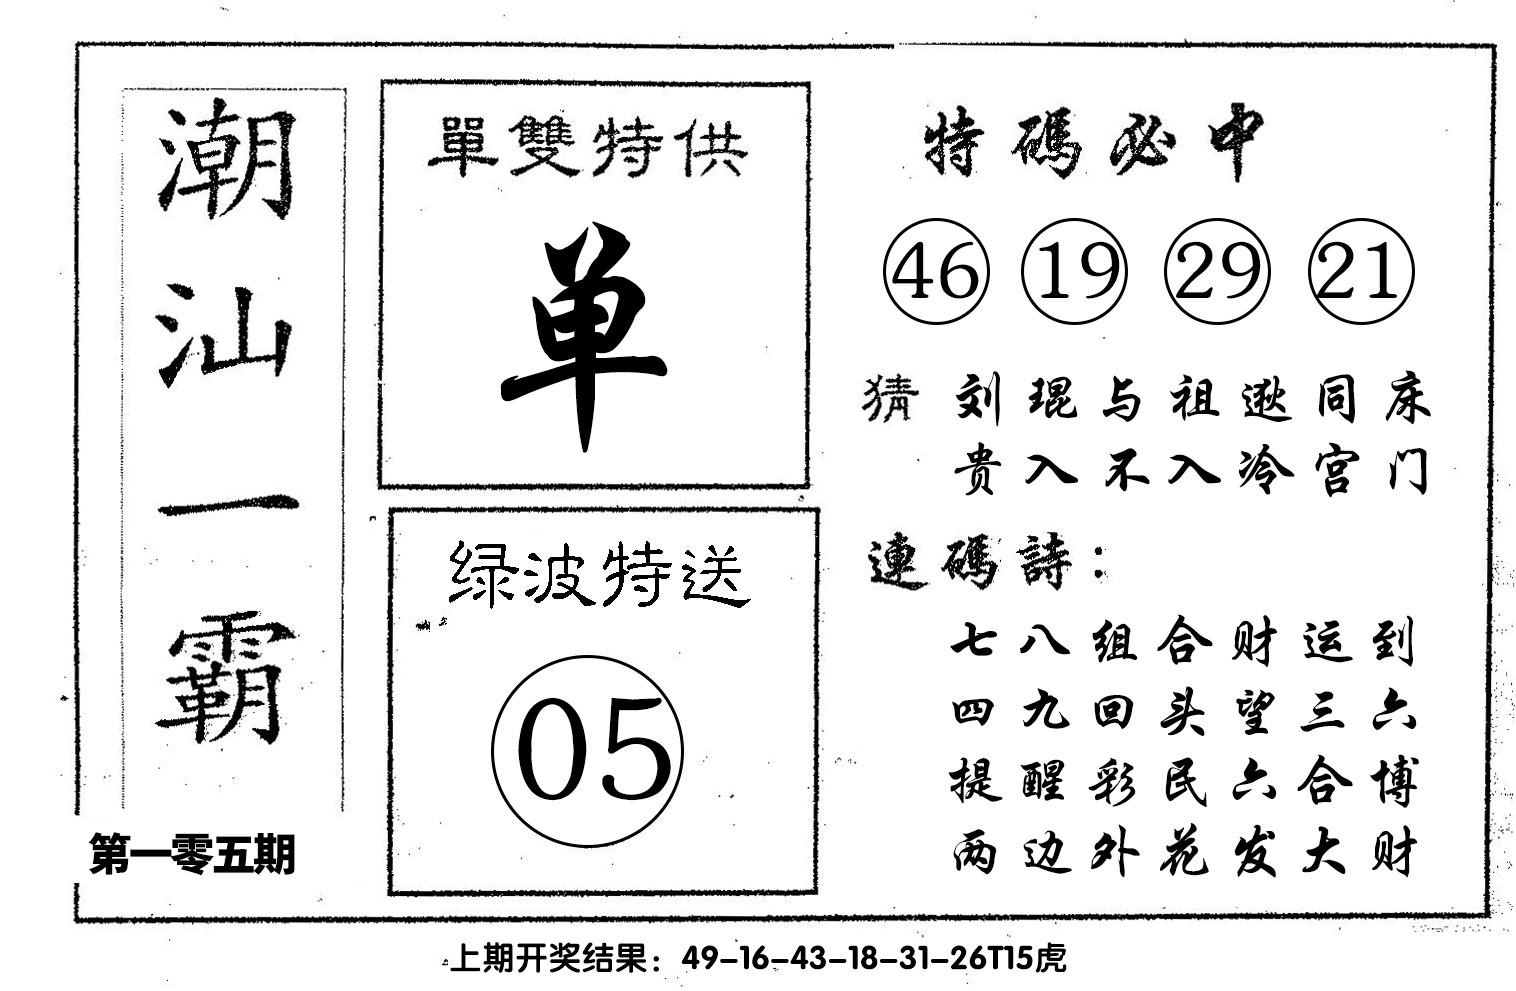 潮汕一霸
第一零五期
單雙特供
单
绿波特送
05
特碼必中
46 19 29 21
猜 刘琨与祖逖同床
贵入不入冷宫门
連碼詩：
七八组合财运到
四九回头望三六
提醒彩民六合博
两边外花发大财
上期开奖结果：49-16-43-18-31-26T15虎